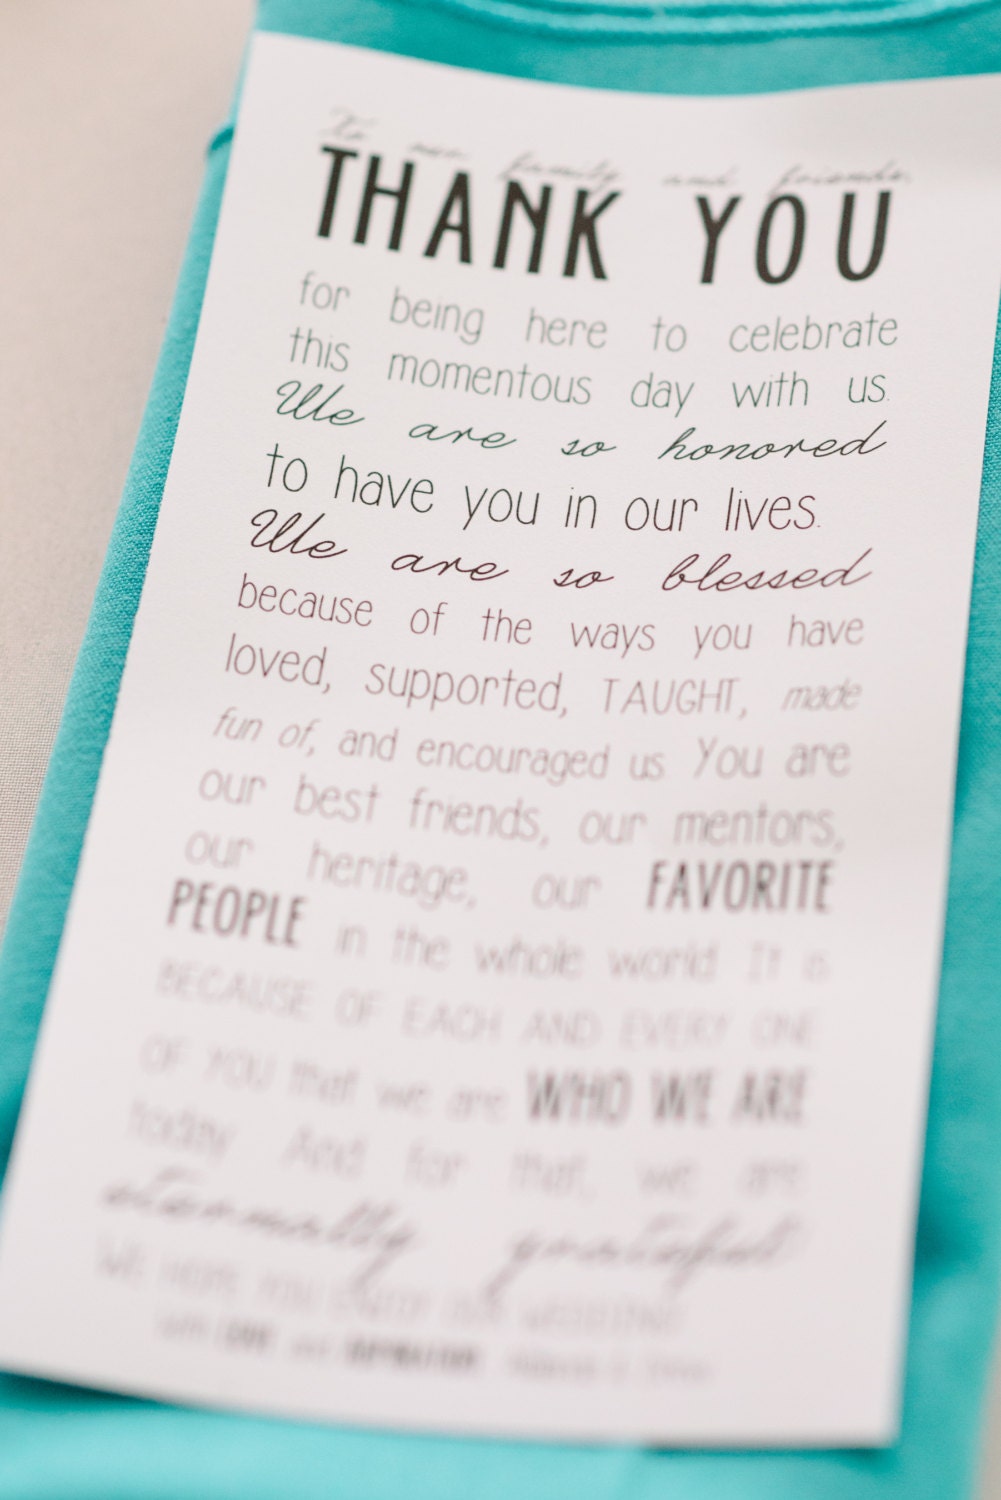 To our family and friends,
THANK YOU
for being here to celebrate
this momentous day with us.
We are so honored
to have you in our lives.
We are so blessed
because of the ways you have
loved, supported, TAUGHT, made
fun of, and encouraged us. You are
our best friends, our mentors,
our heritage, our FAVORITE
PEOPLE in the whole world. It is
BECAUSE OF EACH AND EVERY ONE
OF YOU that we are WHO WE ARE
today. And for that, we are
eternally grateful.
WE HOPE YOU ENJOY OUR WEDDING!
with LOVE and